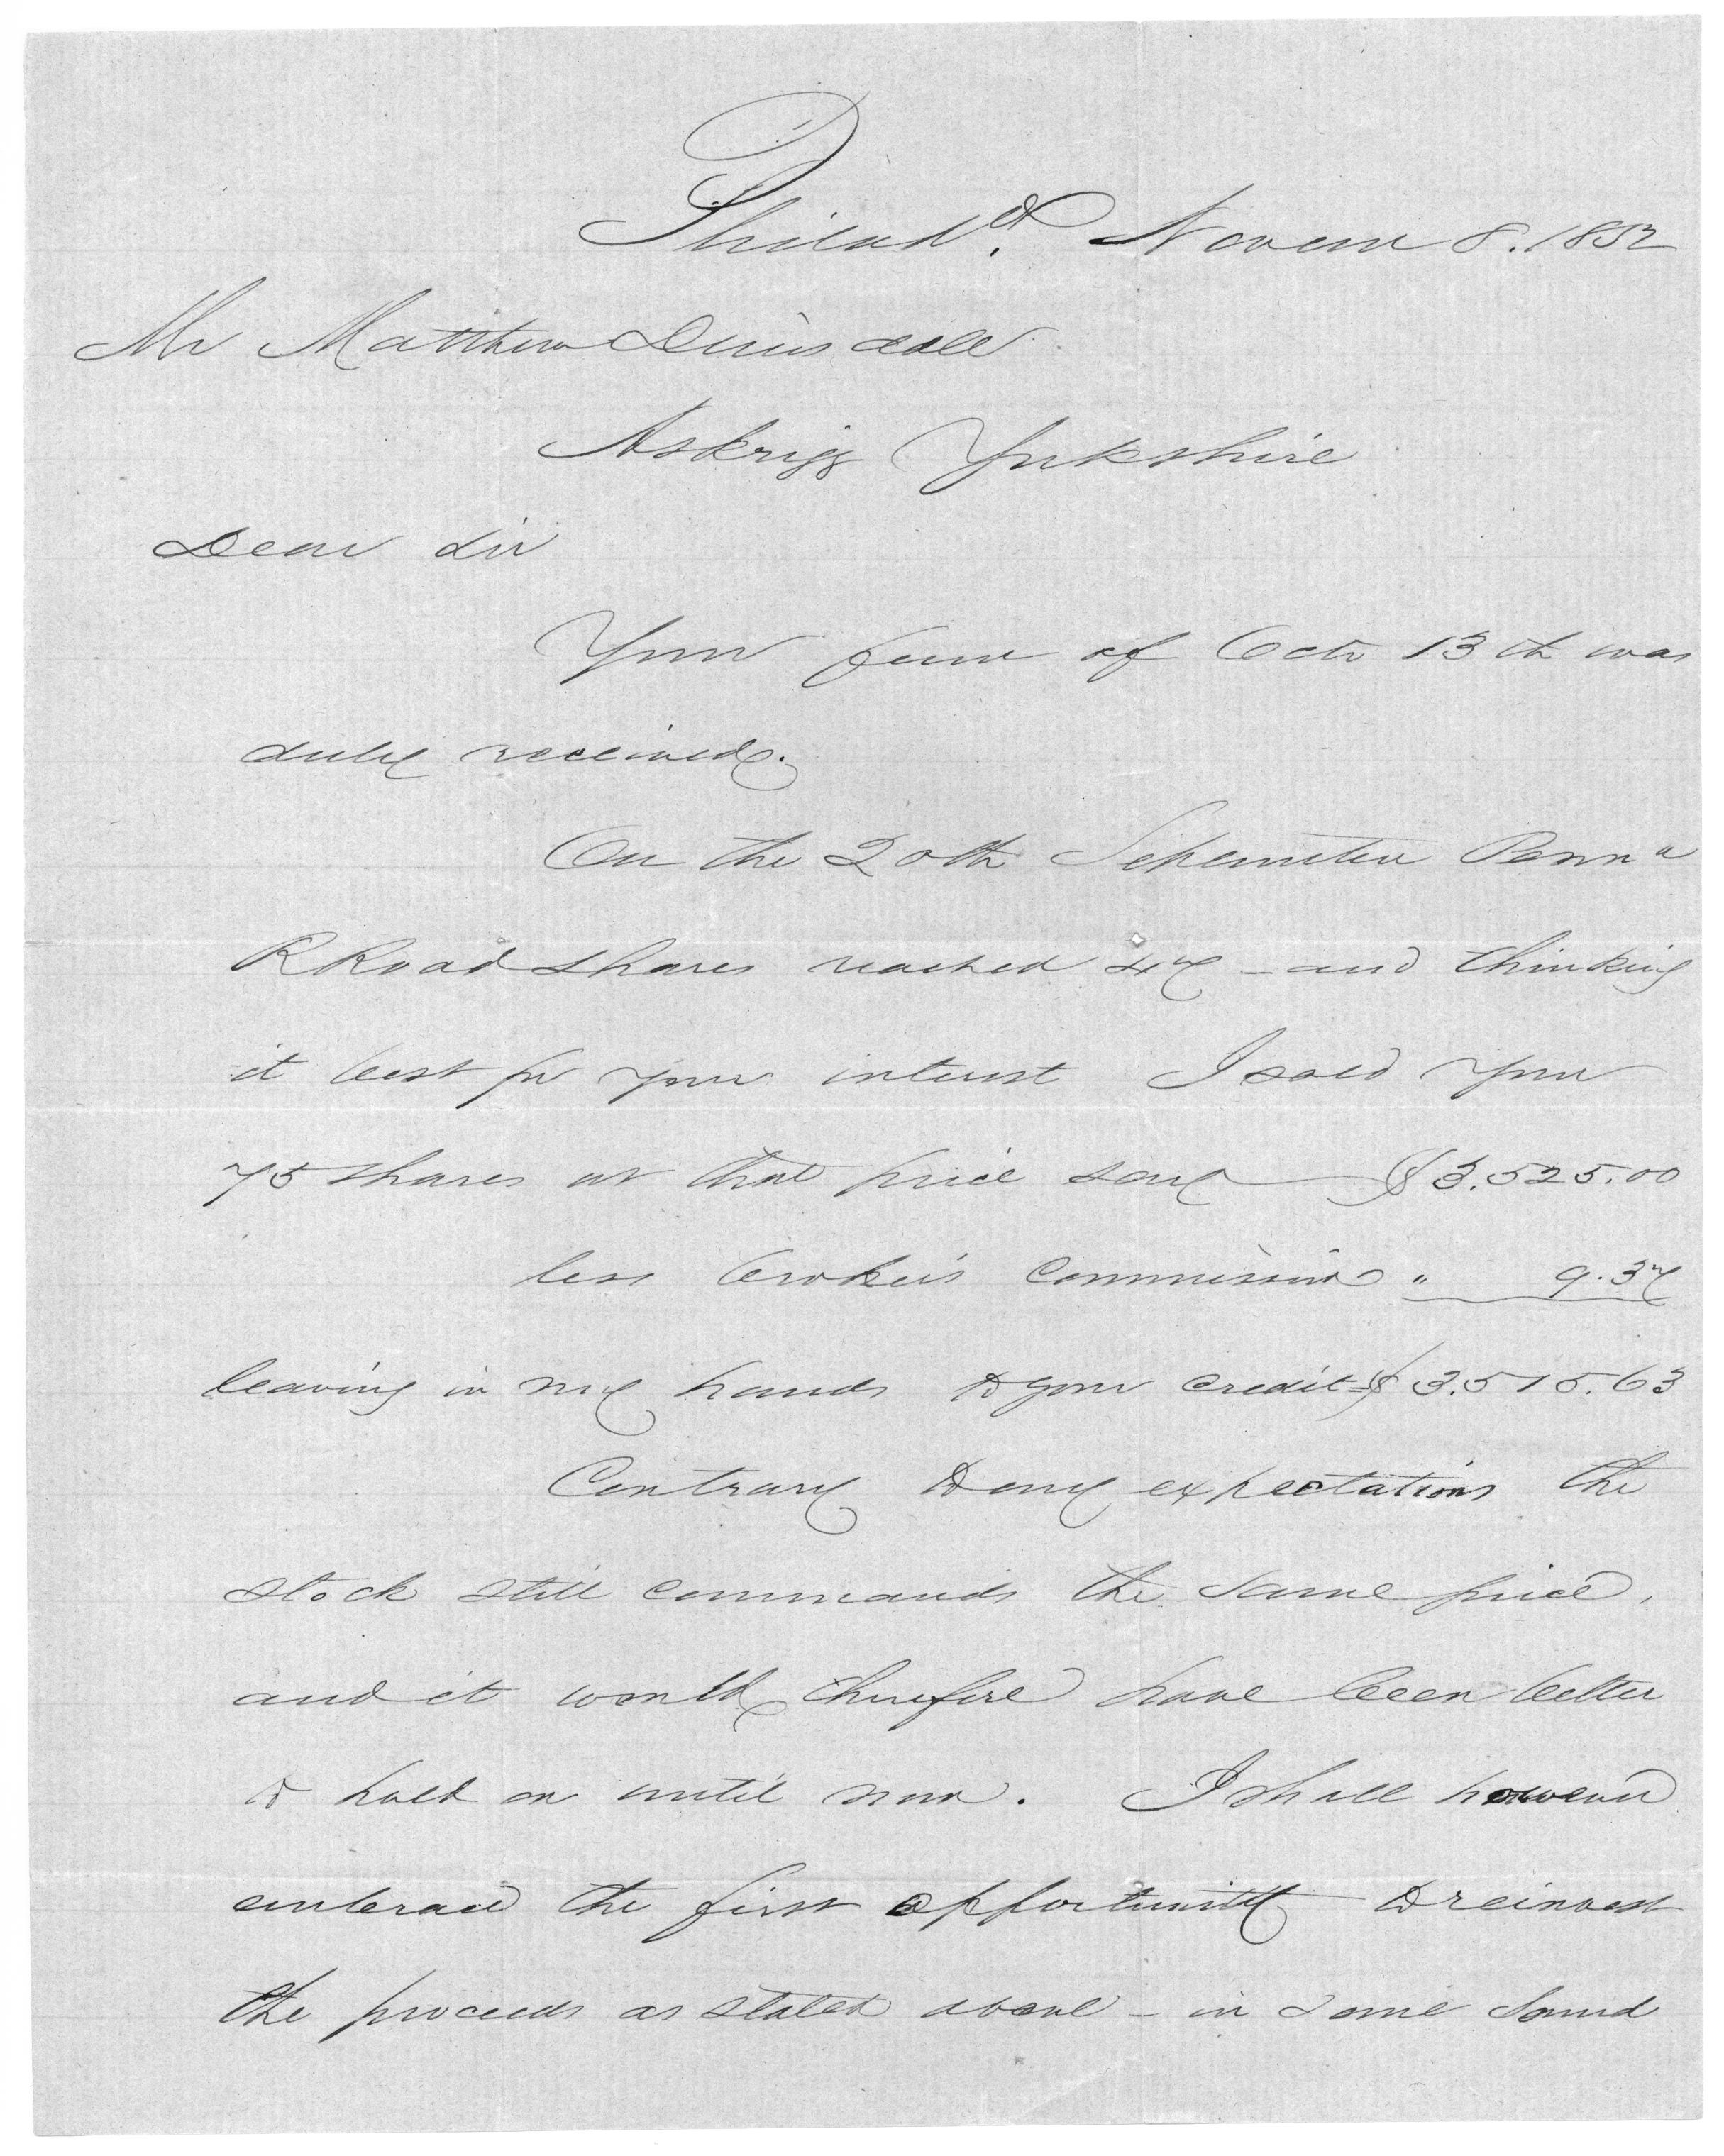 Philad.ª Novem 8. 1852
Mr Matthew Dinsdale
Askrigg Yorkshire
Dear Sir
Your favor of Octr 13th was
duly received.
On the 20th September Pennª
R Road shares reached 47 – and thinking
it best for your interest I sold your
75 shares at that price say $3.525.00
less broker's commission " 9.37
leaving in my hands to your credit $3.515.63
Contrary to my expectations the
stock still commands the same price,
and it would therefore have been better
to hold on until now. I shall however
embrace the first opportunity to reinvest
the proceeds as stated above – in some sound